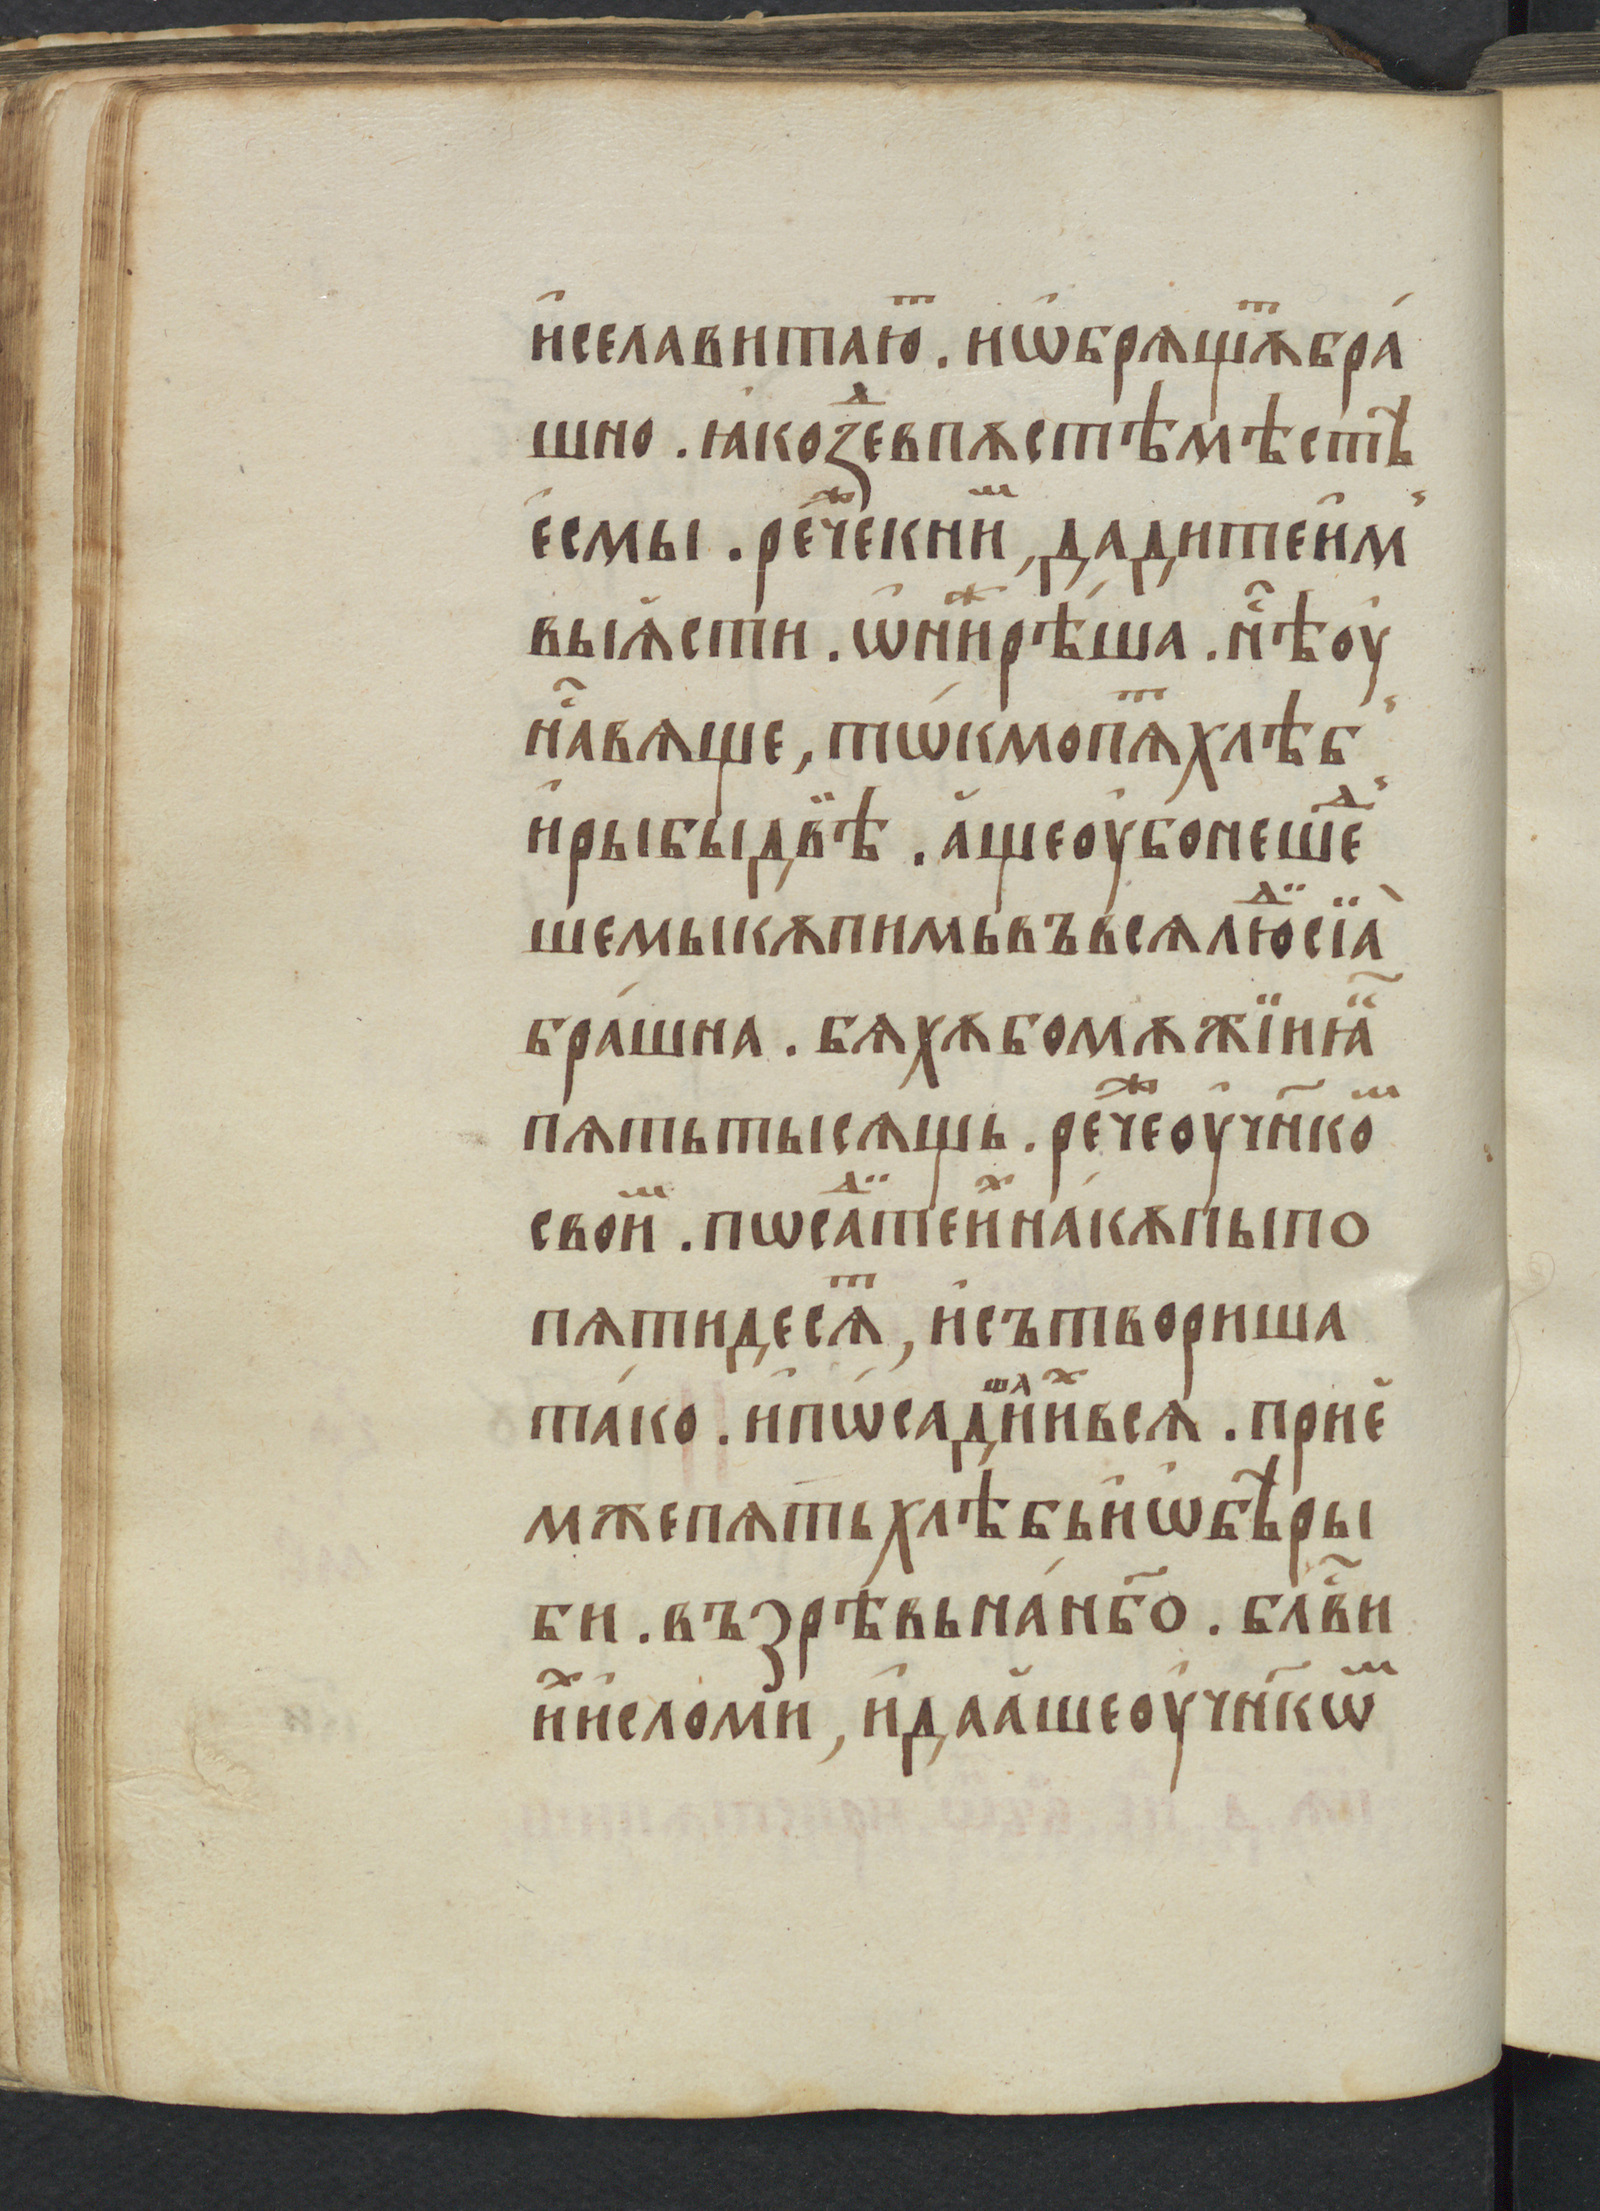 и҆селавитаюⷮ . иѡ҆брѧщѫⷮбра́
шно . ꙗ҆коꙁеⷣвпѫстѣмѣстѣ̑
е҆смы . рече́ⷤкниⷨ , дадитеи҆м
выꙗ҆сти . ѡ҆ниⷤрѣ́ша . н҇ѣоу҆
н҇авѧще , тѡ́кмопѧⷮхлѣб
и҆рыбыдвѣ̈ . а҆щеоу҆бонешеⷣ
шемыкѫпимьвъвсѧлюⷣсїѧ̀
бра́шна . бѧхѫбомѫжїиꙗ҇
пѧтьтысѧщь . рече́ⷤоу҆чн҃коⷨ
своиⷨ . пѡсаⷣтеиⷯна́кѫпыпо
пѧтидесѧⷮ , и҆сътвориша
та́ко . и҆пѡ́садⷲⷶииⷯвьсѧ . прїе҆
мжепѧтьхлѣбьи҆ѡ҆бѣ̑ры
би . въꙁрѣ́вьна́нб҃о . блв҃и
иⷯи҆сломи , и҆даа҆шеоу҆чн҃кѡⷨ